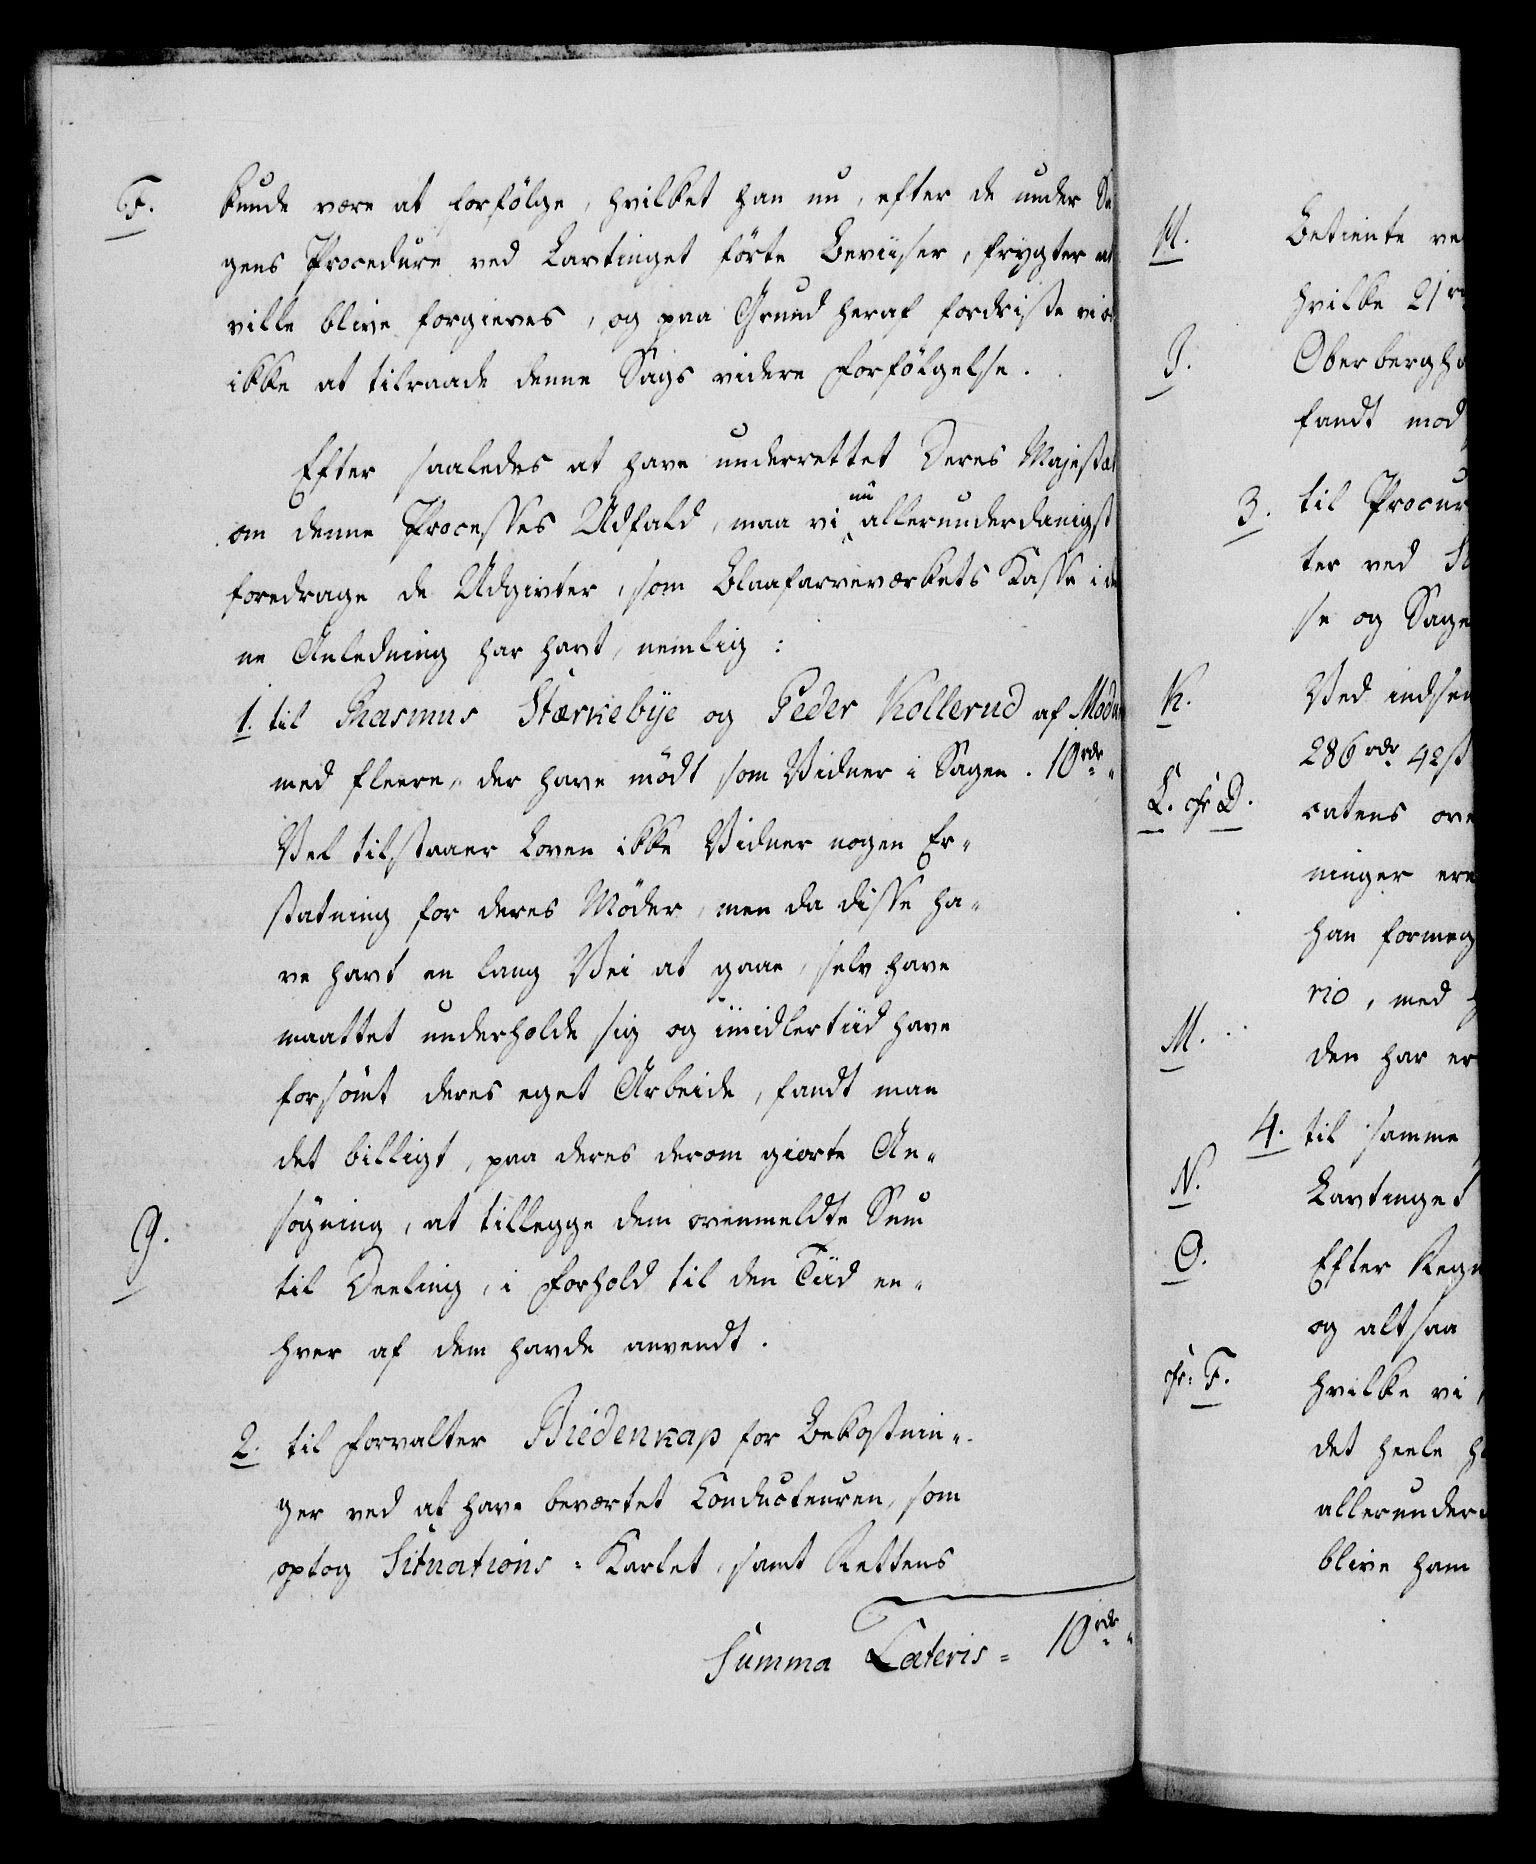 F. kunde være at forfölge, hvilket han nu, efter de under Sa
gens Procedure ved Lavtinget förte Beviiser, frygter at
ville blive forgieves, og paa Grund heraf fordriste vi os
ikke at tilraade denne Sags videre Forfölgelse.
Efter saaledes at have underrettet Deres Majestæt
om denne Processes Udfald, maa vi nu allerunderdanigst
foredrage de Udgivter, som Blaafarveværkets Kasse i den
ne Anledning har havt, nemlig:
1. til Rasmus Stærkebye og Peder Kollerud af Modum
med fleere, der have mödt som Vidner i Sagen. 10 rdr "
Vel tilstaaer Loven ikke Vidner nogen Er-
statning for deres Möder, men da disse ha-
ve havt en lang Vei at gaae, selv have
maattet underholde sig og iimidlertiid have
forsömt deres eget Arbeide, fandt man
det billigt, paa deres derom giorte An-
G. søgning, at tillegge dem ovenmeldte Sum
til Deeling, i Forhold til den Tiid en-
hver af dem havde anvendt.
2. til Forvalter Biedenkap for Bekostnin-
ger ved at have beværtet Conducteuren, som
optog Situations-Kartet, samt Rettens
Summa Lateris = 10 rdr "
H. Betiente ve
hvilke 21 r
I. Oberbergha
fandt mod
3. til Procur
ter ved
se og Sage
K. Ved indsen
286 rdr 42 ß
L. cfr D. catens ove
ninger ere
han formeg
rio, med
M. den har er
4. til samme
N. Lavtinget
O. Efter Regn
og altsaa
cfr: F. hvilke vi
det heele
allerunder
blive ham